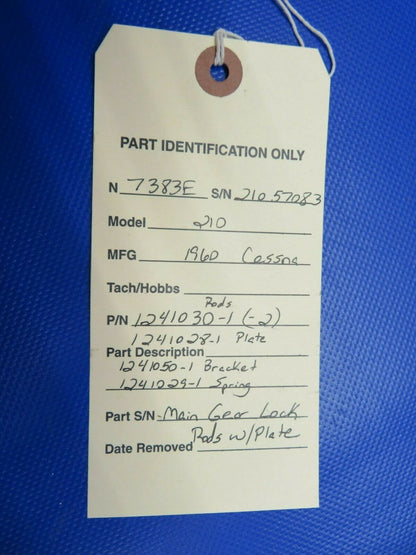 PART IDENTIFICATION ONLY
N 7383E S/N 210 57083
Model 210
MFG 1960 Cessna
Tach/Hobbs
Rods
P/N 1241030-1 (-2)
1241028-1 Plate
Part Description
1241050-1 Bracket
1241029-1 Spring
Part S/N Main Gear Lock
Rods w/Plate
Date Removed